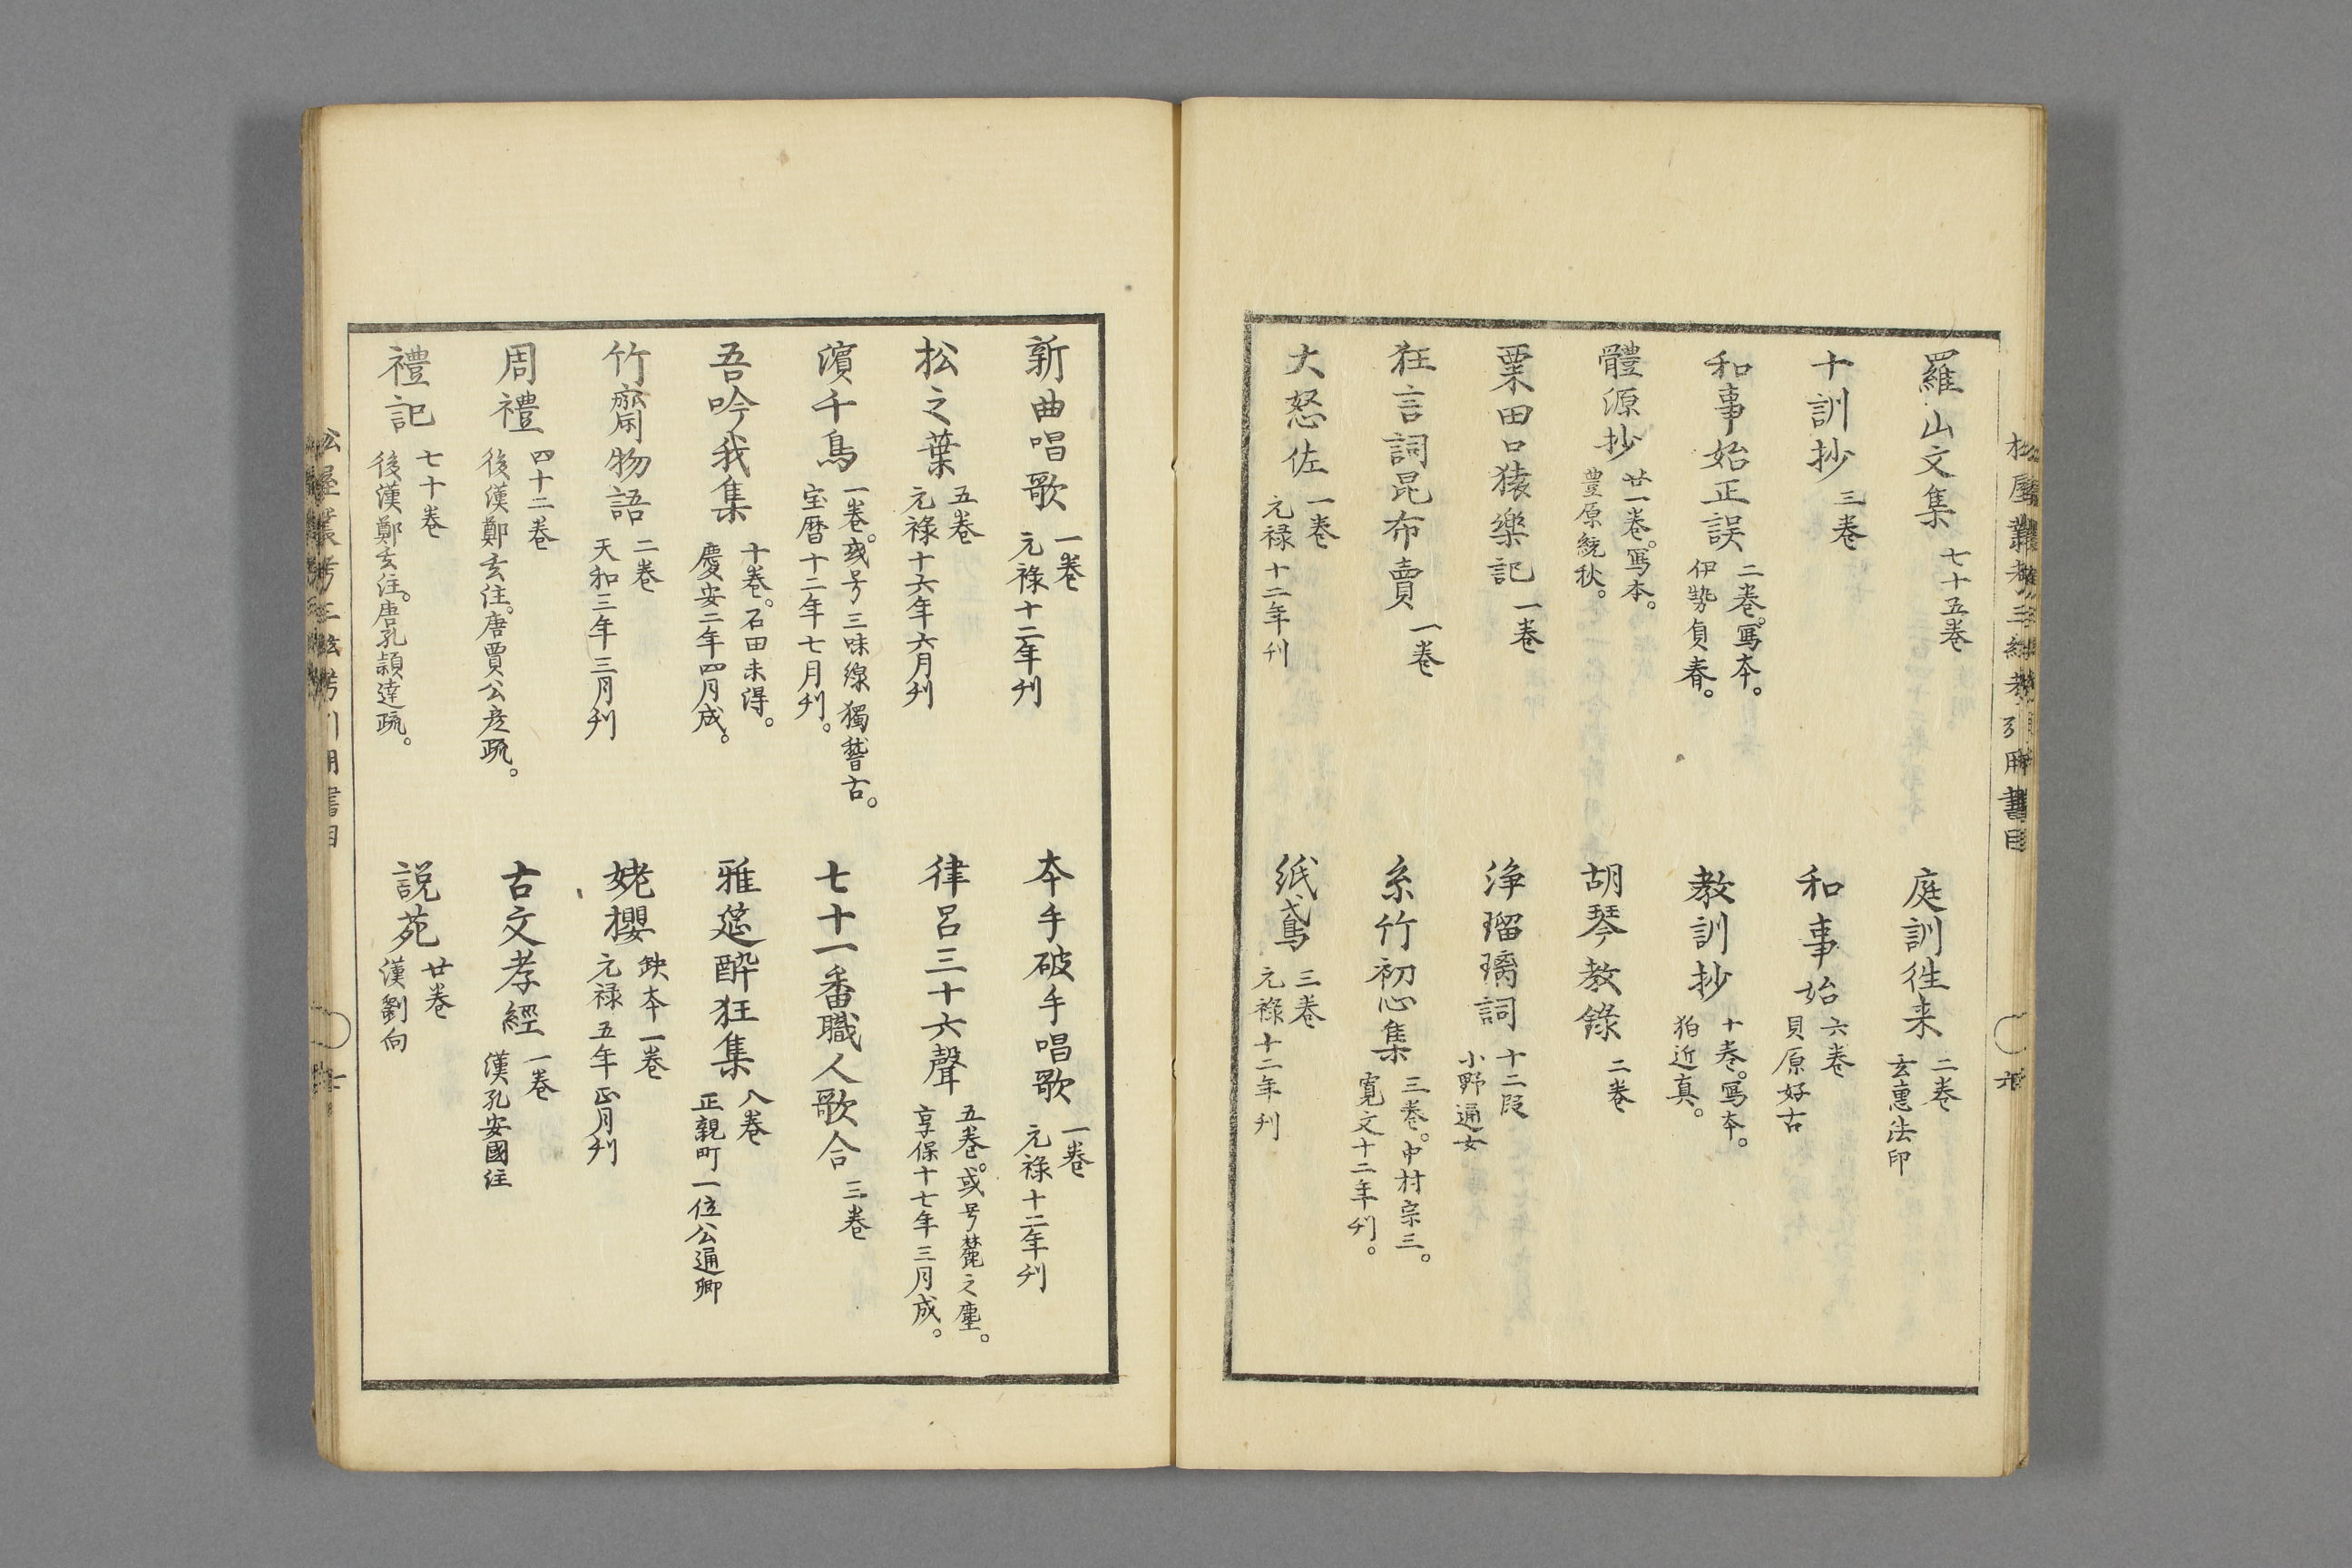 羅山文集 七十五巻
庭訓往来 二巻 玄惠法印
十訓抄 三巻
和事始 六巻 貝原好古
和事始正誤 二巻。写本。伊勢貞春。
教訓抄 十巻。写本。狛近真。
體源抄 廿一巻。写本。豊原統秋。
胡琴教錄 二巻
粟田口猿樂記 一巻
浄瑠璃詞 十二段 小野通女
狂言詞昆布賣 一巻
糸竹初心集 三巻。中村宗三。寛文十二年刋。
大怒佐 一巻 元禄十二年刋
紙鳶 三巻 元禄十二年刋
新曲唱歌 一巻 元禄十二年刋
本手破手唱歌 一巻 元禄十二年刋
松之葉 五巻 元禄十六年六月刋
律呂三十六聲 五巻。或号麓之塵。享保十七年三月成。
濱千鳥 一巻。或号三味線獨替古。宝暦十二年七月刋。
七十一番職人歌合 三巻
吾吟我集 十巻。石田未得。慶安二年四月成。
雅莚醉狂集 八巻 正親町一位公通卿
竹齋物語 二巻 天和三年三月刋
姥櫻 欽本一巻 元禄五年正月刋
周禮 四十二巻 後漢鄭玄注。唐賈公彦疏。
古文孝經 一巻 漢孔安國注
禮記 七十巻 後漢鄭玄注。唐孔頴達疏。
説苑 廿巻 漢劉向